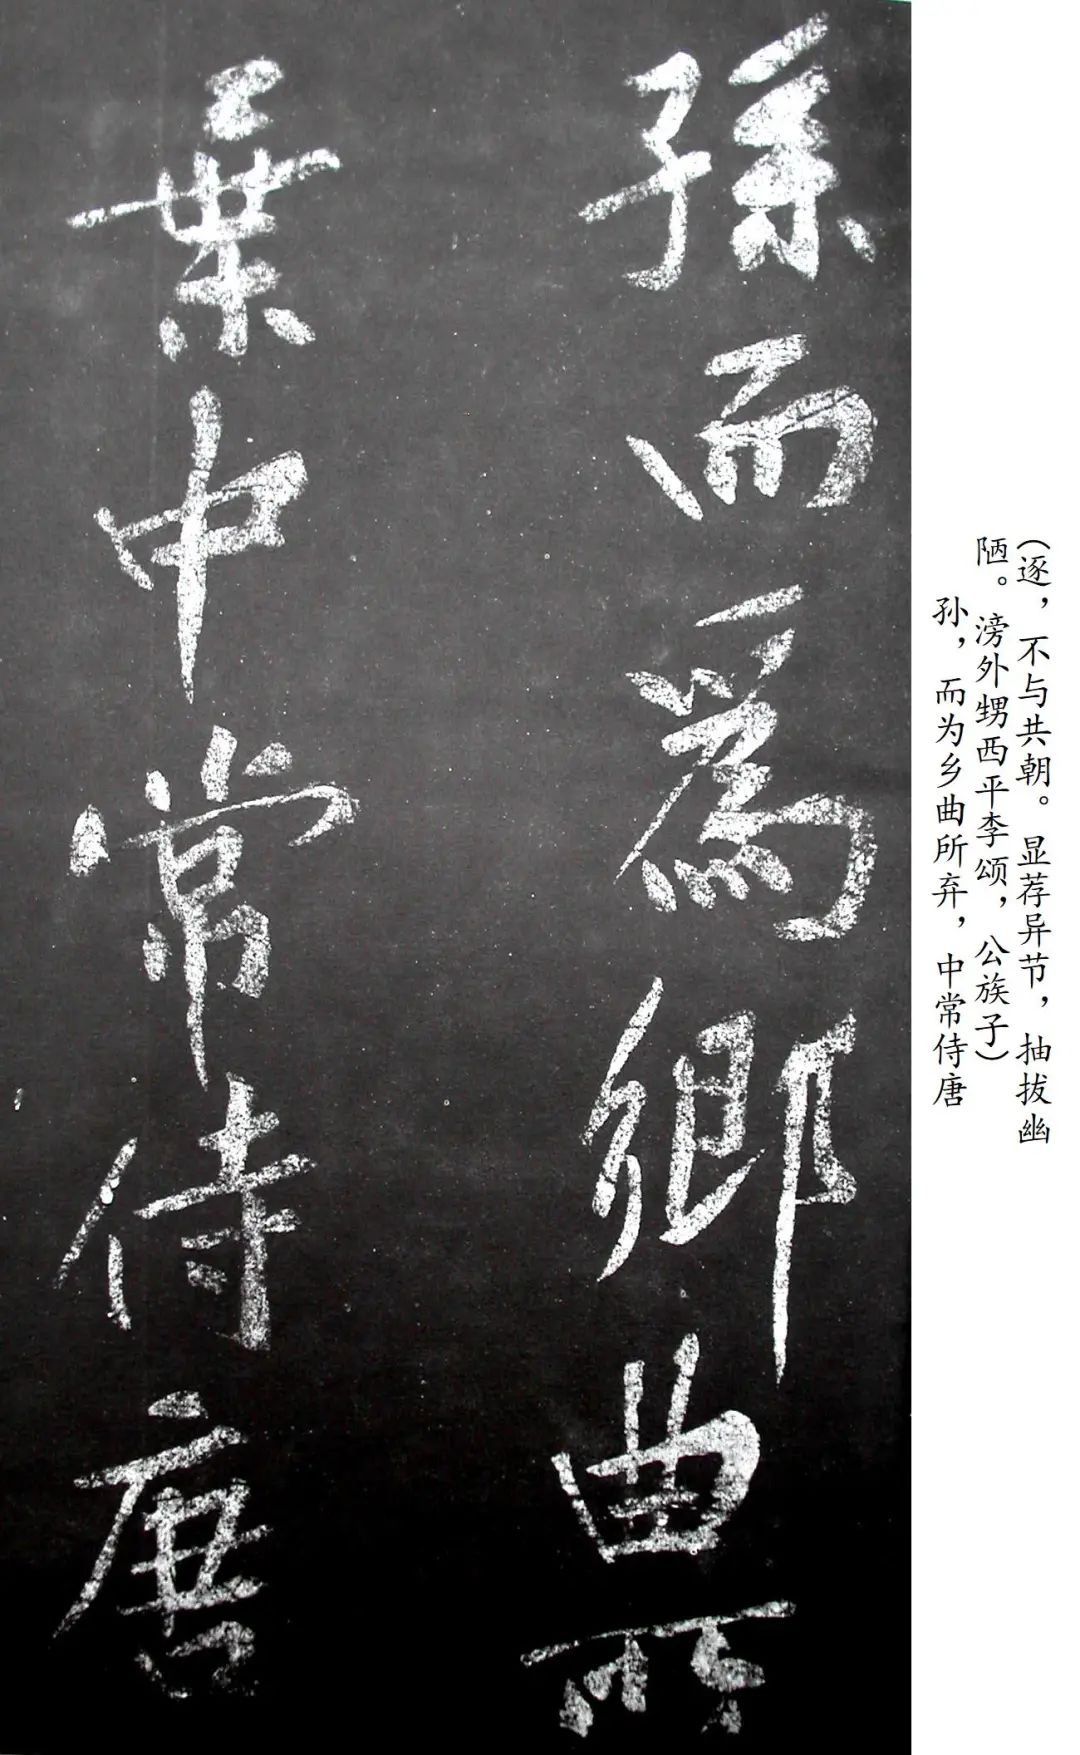 (逐，不与共朝。显荐异节，抽拔幽
陋。滂外甥西平李颂，公族子)
孙，而为乡曲所弃，中常侍唐
孫而爲鄉曲所
棄中常侍唐